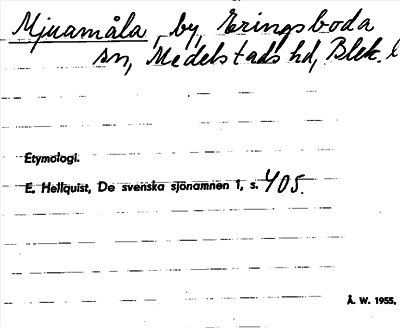 Mjuamåla, by, Eringsboda
sn, Medelstads hd, Blek. l
Etymologi.
E. Hellquist, De svenska sjönamnen 1, s. 405.
Å. W. 1955.